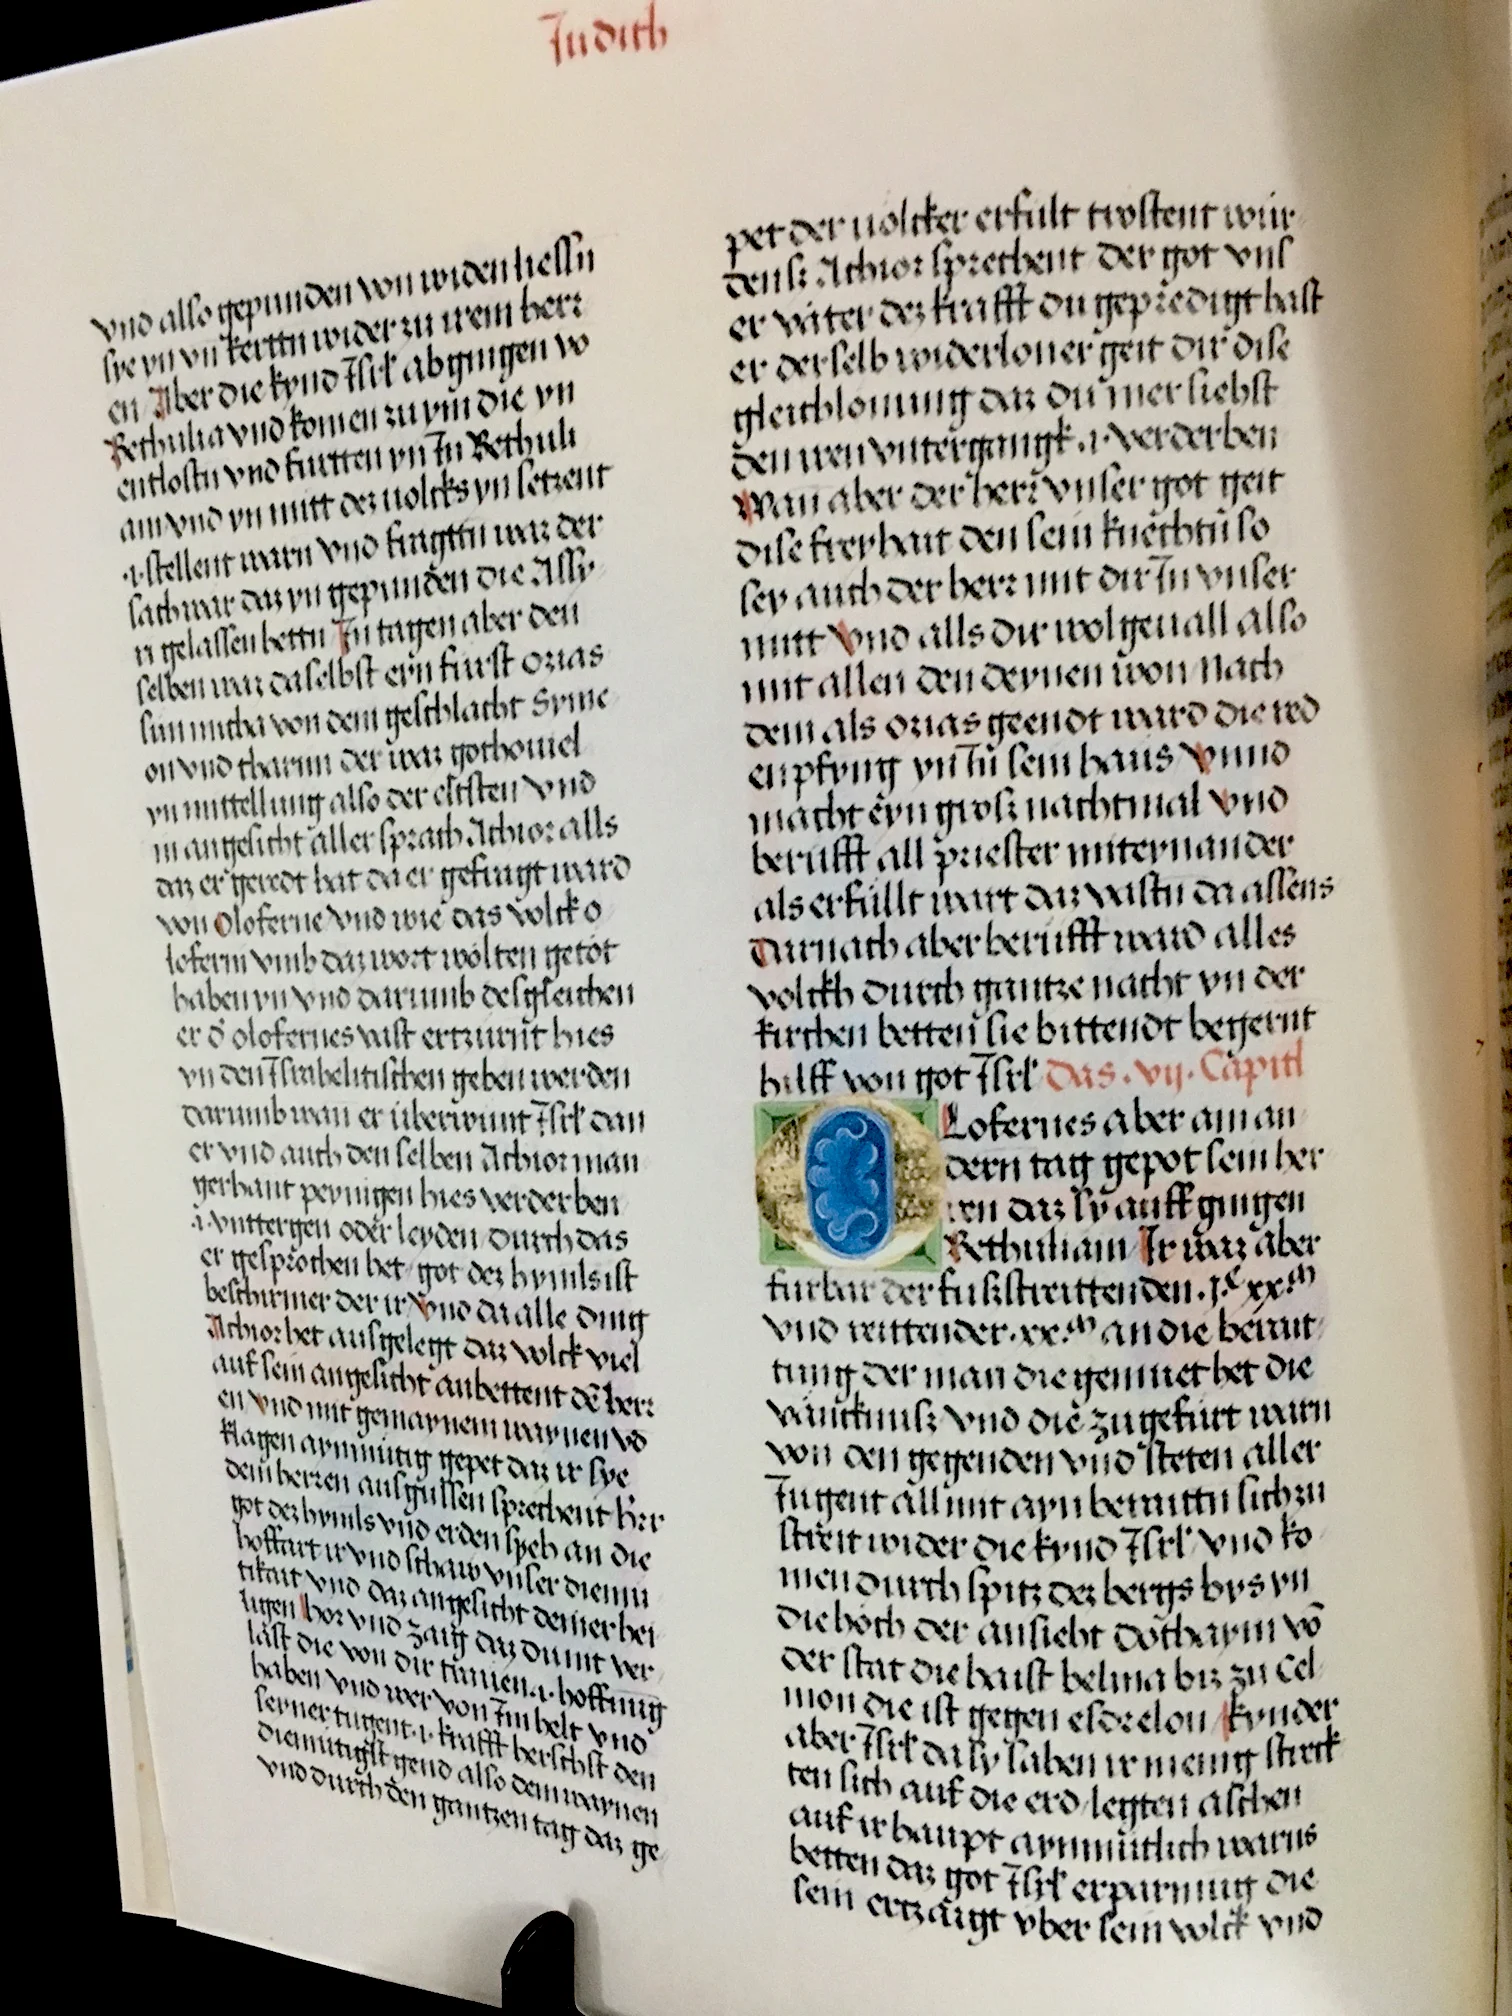 Judith
vnd also gepunden von widen liessn
sye yn vn kerttn wider zu irem herr
en Aber die kynd Isrl abgingen vo
Bethulia vnd komen zu ym die yn
entlostn vnd furtten yn In Bethuli
am vnd yn mitt dez uolcks yn setzent
.i. stellent warn vnd fragttn waz der
sach war daz yn gepunden die Assy
ri gelassen hettn In tagen aber den
selben waz daselbst eyn furst ozias
sun micha von dem geschlacht Syme
on vnd charmi der waz gothoniel
yn mittellung also der eltsten vnd
in angesicht aller sprach Achior alls
daz er geredt hat da er gefragt ward
von Oloferne vnd wie das volck o
loferni vmb daz wort wolten getot
haben yn vnd darumb desgleichen
er d' olofernes vast ertzurnt hies
yn den Israhelitischen geben werden
darumb wan er überwint Isrl dan
er vnd auch den selben Achior man
gerhant peynigen hies verderben
.i. vnttergen oder leyden durch das
er gesprochen het got dez hymls ist
beschirmer der ir Vnd da alle ding
Achior het ausgelegt daz volck viel
auf sein angesicht anbettent dē herr
en vnd mit gemaynem waynen vō
klagen aynmütig gepet daz ir sye
dem herren ausgussen sprechent herr
got dez hymls vnd erden sych an die
hoffart ir vnd schaw vnser diemu
tikait vnd daz angesicht deiner hei
ligen hor vnd zaig daz du nit ver
last die von dir tunen .i. hoffnung
haben vnd wer von Im helt vnd
seyner tugent .i. krafft herschst den
diemütigst gend also dem waynen
vnd durch den gantzen tag daz ge
pet der uolcker erfult trostent wur
dens Achior sprechent der got vns
er väter dez krafft du gepredigt hast
er derselb widerloner geit dir dise
gleichlonung daz du mer siehst
den iren vntergangk .i. verderben
Wan aber der herr vnser got geit
dise freyhait den sein knechtn so
sey auch der herr mit dir In vnser
mitt Vnd alls dir wolgeuall also
mit allen den deynen won nach
dem als ozias geendt ward die red
enpfyng yn In sein haus Vnnd
macht eyn gross nachtmal vnd
berufft all priester miteynander
als erfullt wart daz vastn da assens
Darnach aber berufft ward alles
volckh durch gantze nacht yn der
kirchen betten sie bittendt begernt
hilff von got Isrl Das .vij. Capitl
Olofernes aber am an
dern tag gepot sein her
ren daz sy auff gingen
Bethuliam Ir waz aber
furbar der fussstreittenden .jᶜxx.ᵐ
vnd reittender .xx.ᵐ an die berait
tung der man die gemuet het die
vänckniss vnd die zugefurt warn
von den gegenden vnd steten aller
Iugent all mit ayn beraittn sich zu
streit wider die kynd Isrl vnd ko
men durch spitz dez bergs bys yn
die höch der ansieht dothaym vō
der stat die haist belma biz zu Cel
mon die ist gegen esdrelon kynder
aber Isrl da sy sahen ir menig streck
ten sich auf die erd legten aschen
auf ir haupt aynmütlich warns
betten daz got Isrl erparmug die
sein ertzaigt vber sein volck vnd